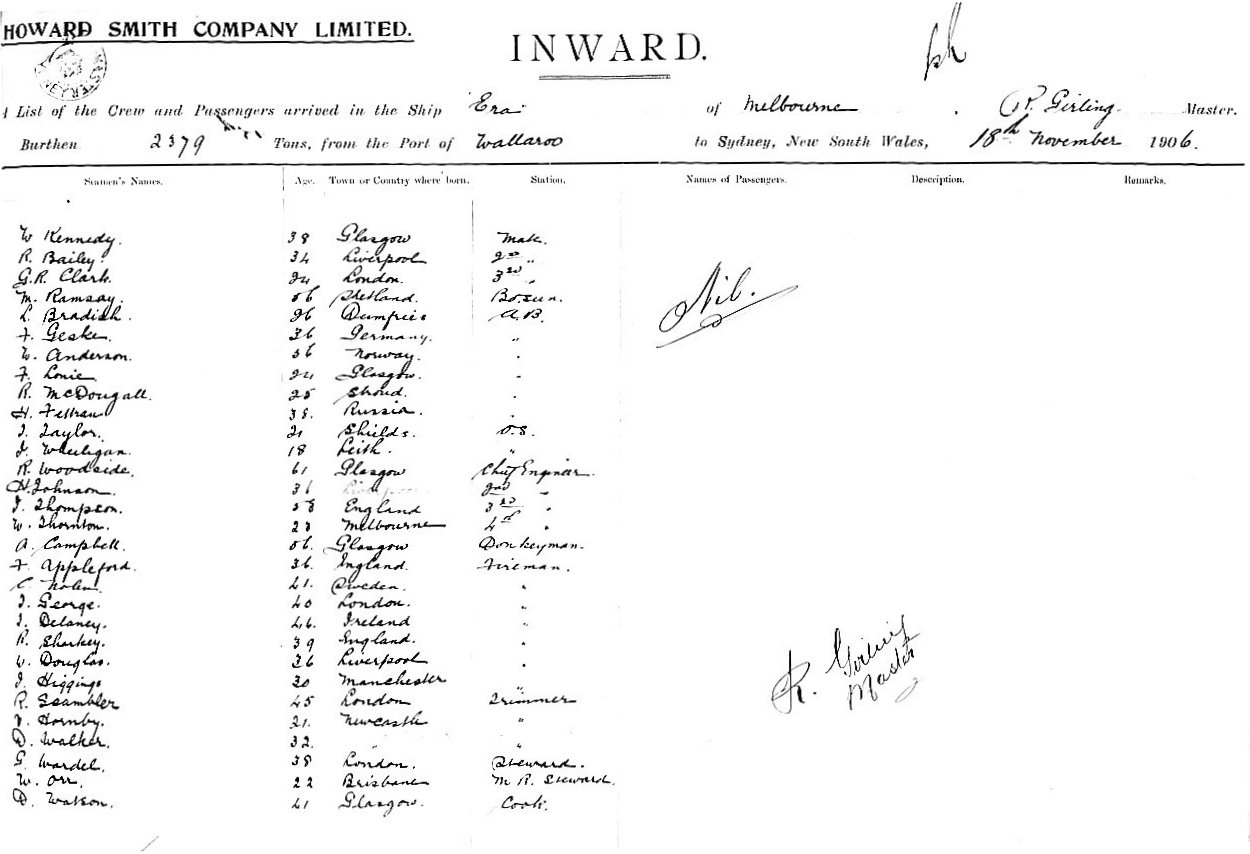 HOWARD SMITH COMPANY LIMITED.
INWARD.
A List of the Crew and Passengers arrived in the Ship Era of Melbourne R. Girling Master.
Burthen 2379 Tons, from the Port of Wallaroo to Sydney, New South Wales, 18th November 1906.
Seamen's Names. Age. Town or Country where born. Station. Names of Passengers. Description. Remarks.
W Kennedy. 38 Glasgow Mate.
R. Bailey. 34 Liverpool 2nd "
G.R. Clark. 24 London. 3rd "
M. Ramsay. 56 Shetland. Bosun.
L. Bradish. 26 Dumfries A.B.
F. Geske. 36 Germany. "
W. Anderson. 36 Norway. "
F. Lonie. 24 Glasgow. "
R. McDougall. 25 Stroud. "
H. 38. Russia. "
J. Taylor. 21 Shields. O.S.
J. 18 Leith. "
R. Woodside. 61 Glasgow Chief Engineer.
H. Johnson. 36 Liverpool 2nd "
J. Thompson. 58 England 3rd "
W. Thornton. 23 Melbourne 4th "
A. Campbell. 56. Glasgow Donkeyman.
F. Appleford. 36. England. Fireman.
C. 41. Sweden. "
J. George. 40 London. "
J. Delaney. 46. Ireland "
R. Sharkey. 39 England. "
W. Douglas. 36 Liverpool "
J. Higgings 30 Manchester "
R. Scambler 45 London Trimmer
V. Hornby. 21. Newcastle "
D. Walker. 32. " "
G. Wardel. 38 London. Steward.
W. Orr. 22 Brisbane M. R. Steward.
D. Watson. 41 Glasgow. Cook.
Nil.
R. Girling
Master